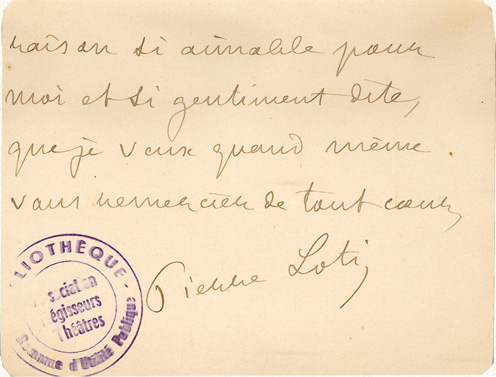 raison si aimable pour
moi et si gentiment dite,
que je veux quand même
vous remercier de tout cœur,
Pierre Loti
BLIOTHÈQUE
sociation
égisseurs
Théâtres
Reconnue d'Utilité Publique